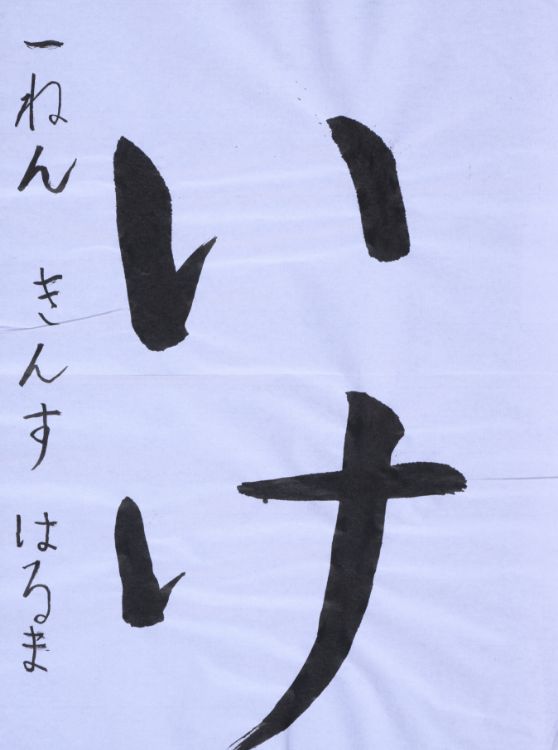 いけ
一ねん きんす はるま